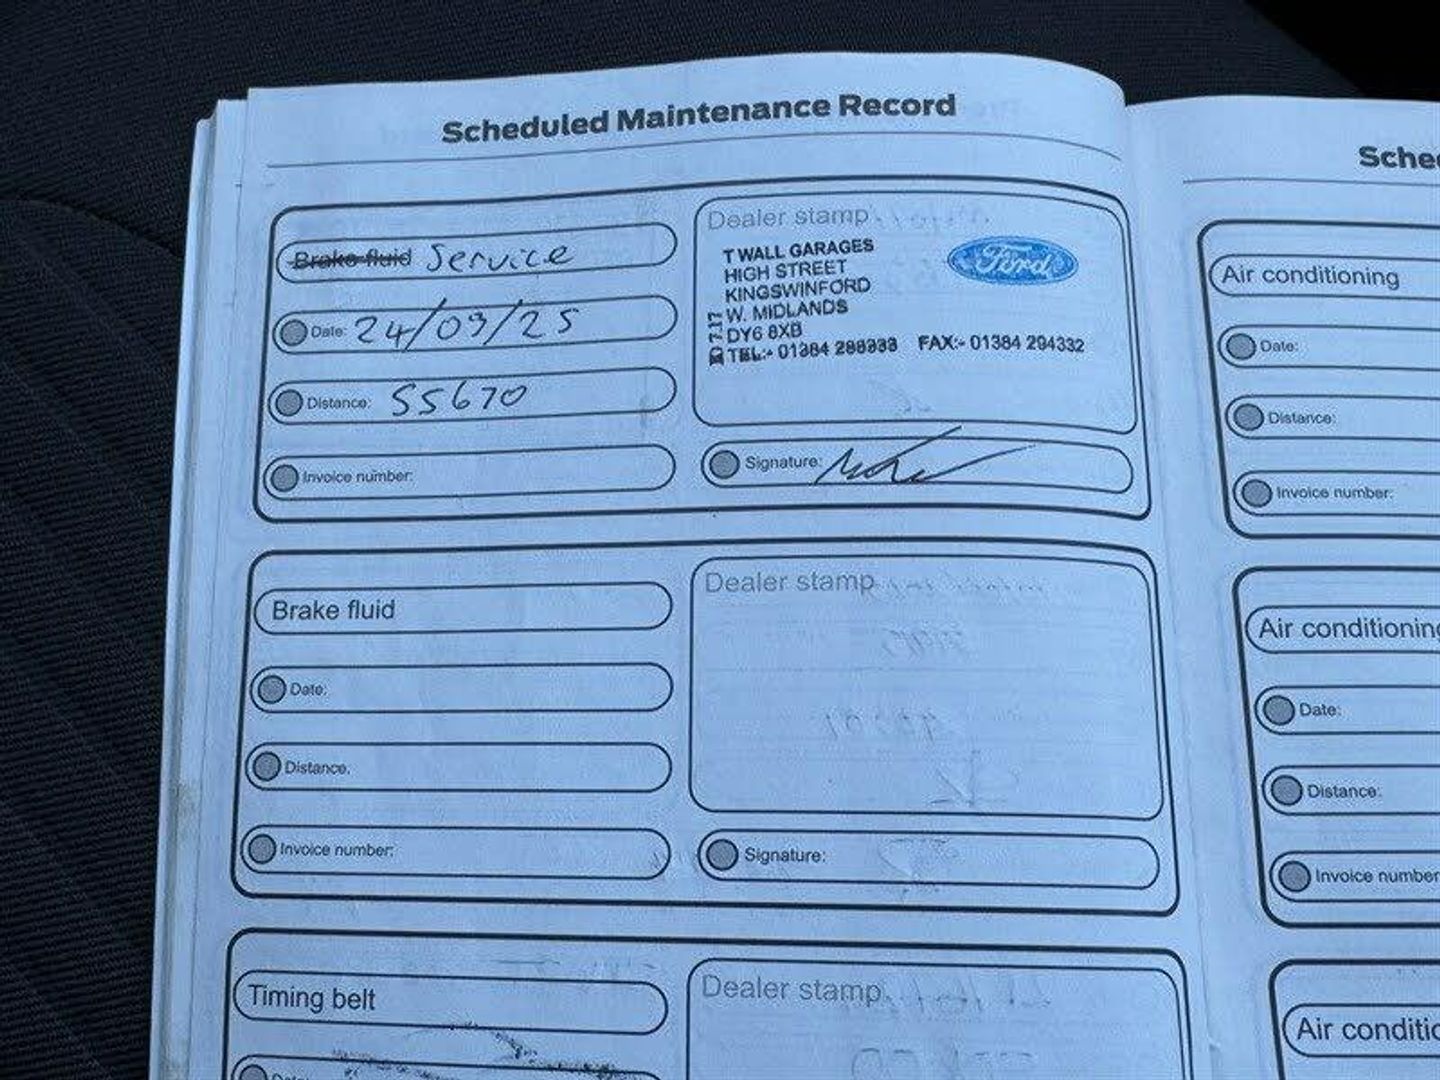 Scheduled Maintenance Record
Brake fluid Service
Date: 24/03/25
Distance: 55670
Invoice number:
Dealer stamp
T WALL GARAGES
HIGH STREET
KINGSWINFORD
W. MIDLANDS
DY6 8XB
TEL:- 01384 288333 FAX:- 01384 294332
Ford
Signature:
Brake fluid
Date:
Distance:
Invoice number:
Dealer stamp
Signature:
Timing belt
Date:
Dealer stamp
Sche
Air conditioning
Date:
Distance:
Invoice number:
Air conditioning
Date:
Distance:
Invoice number
Air conditio